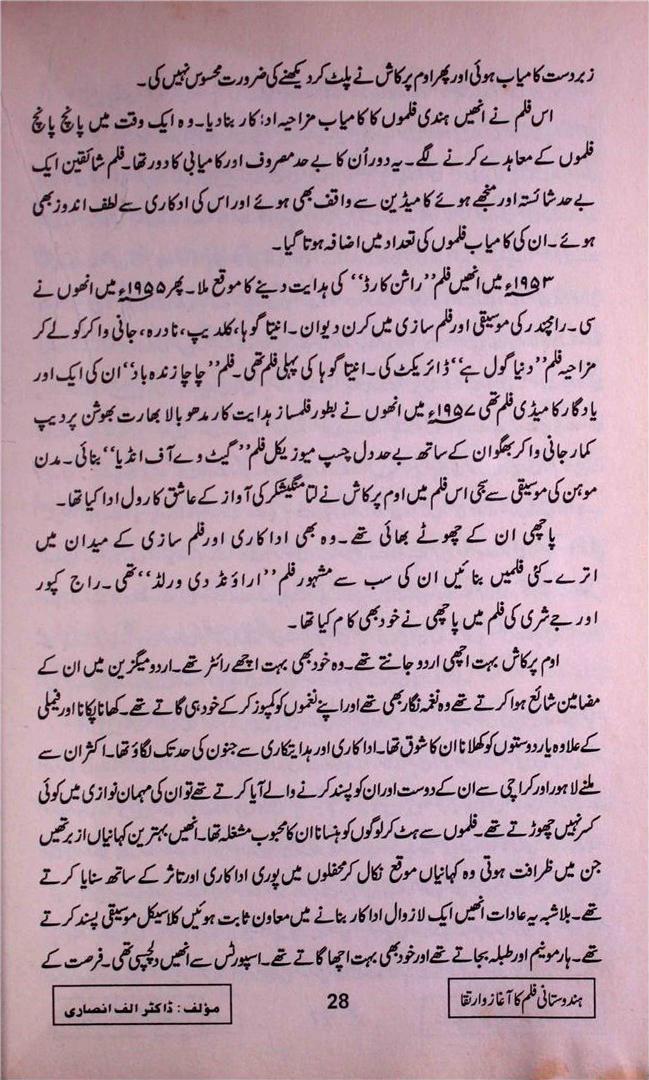 زبردست کامیاب ہوئی اور پھر اوم پرکاش نے پلٹ کر دیکھنے کی ضرورت محسوس نہیں کی۔
اس فلم نے انھیں ہندی فلموں کا کامیاب مزاحیہ اداکار بنا دیا۔ وہ ایک وقت میں پانچ پانچ
فلموں کے معاہدے کرنے لگے۔ یہ دور اُن کا بے حد مصروف اور کامیابی کا دور تھا۔ فلم شائقین ایک
بے حد شائستہ اور منجھے ہوئے کامیڈین سے واقف بھی ہوئے اور اس کی ادکاری سے لطف اندوز بھی
ہوئے۔ ان کی کامیاب فلموں کی تعداد میں اضافہ ہوتا گیا۔
۱۹۵۳ء میں انھیں فلم ’’راشن کارڈ‘‘ کی ہدایت دینے کا موقع ملا۔ پھر ۱۹۵۵ء میں انھوں نے
سی۔ رامچندر کی موسیقی اور فلم سازی میں کرن دیوان۔ انیتا گوہا، کلدیپ، نادرہ، جانی واکر کو لے کر
مزاحیہ فلم ’’دنیا گول ہے‘‘ ڈائریکٹ کی۔ انیتا گوہا کی پہلی فلم تھی۔ فلم ’’چاچا زندہ باد‘‘ ان کی ایک اور
یادگار کامیڈی فلم تھی ۱۹۵۷ء میں انھوں نے بطور فلمساز ہدایت کار مدھوبالا بھارت بھوشن پردیپ
کمار جانی واکر بھگوان کے ساتھ بے حد دل چسپ میوزیکل فلم ’’گیٹ وے آف انڈیا‘‘ بنائی۔ مدن
موہن کی موسیقی سے سجی اس فلم میں اوم پرکاش نے لتا منگیشکر کی آواز کے عاشق کا رول ادا کیا تھا۔
پاچھی ان کے چھوٹے بھائی تھے۔ وہ بھی اداکاری اور فلم سازی کے میدان میں
اترے۔ کئی فلمیں بنائیں ان کی سب سے مشہور فلم ’’اراؤنڈ دی ورلڈ‘‘ تھی۔ راج کپور
اور جے شری کی فلم میں پاچھی نے خود بھی کام کیا تھا۔
اوم پرکاش بہت اچھی اردو جانتے تھے۔ وہ خود بھی بہت اچھے رائٹر تھے۔ اردو میگزین میں ان کے
مضامین شائع ہوا کرتے تھے وہ نغمہ نگار بھی تھے اور اپنے نغموں کو کمپوز کر کے خود ہی گاتے تھے۔ کھانا پکانا اور فیملی
کے علاوہ یار دوستوں کو کھلانا ان کا شوق تھا۔ اداکاری اور ہدایتکاری سے جنون کی حد تک لگاؤ تھا۔ اکثر ان سے
ملنے لاہور اور کراچی سے ان کے دوست اور ان کو پسند کرنے والے آیا کرتے تھے تو ان کی مہمان نوازی میں کوئی
کسر نہیں چھوڑتے تھے۔ فلموں سے ہٹ کر لوگوں کو ہنسانا ان کا محبوب مشغلہ تھا۔ انھیں بہترین کہانیاں ازبر تھیں
جن میں ظرافت ہوتی وہ کہانیاں موقع نکال کر محفلوں میں پوری اداکاری اور تاثر کے ساتھ سنایا کرتے
تھے۔ بلاشبہ یہ عادات انھیں ایک لازوال اداکار بنانے میں معاون ثابت ہوئیں کلاسیکل موسیقی پسند کرتے
تھے۔ ہارمونیم اور طبلہ بجاتے تھے اور خود بھی بہت اچھا گاتے تھے۔ اسپورٹس سے انھیں دلچسپی تھی۔ فرصت کے
ہندوستانی فلم کا آغاز و ارتقا
28
مؤلف: ڈاکٹر الف انصاری